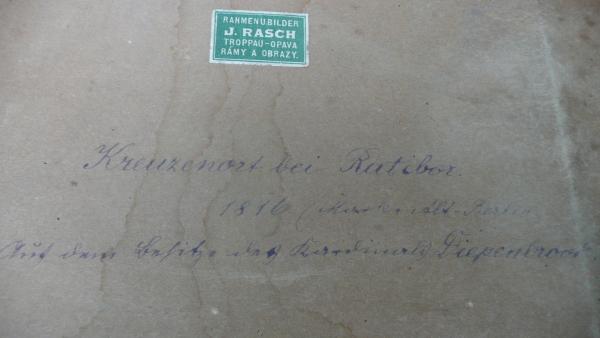 RAHMEN U. BILDER
J. RASCH
TROPPAU-OPAVA
RÁMY A OBRAZY.
Kreuzenort bei Ratibor.
1816 (Marke Alt-Berlin
Aus dem Besitze des Kardinals Diepenbrock